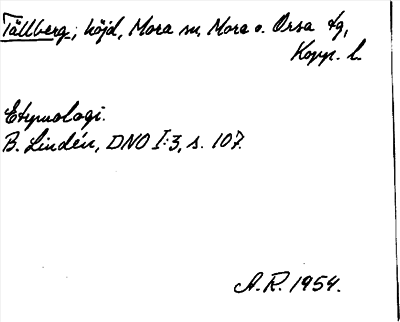 Tällberg, höjd, Mora sn, Mora o. Orsa tg,
Kopp. l.
Etymologi.
B. Lindén, DNO I:3, s. 107.
A.R. 1954.